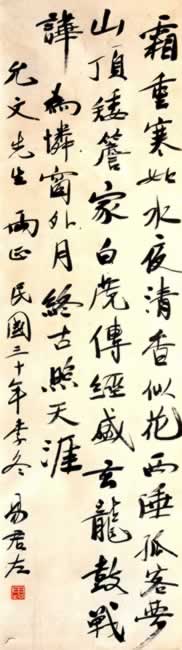 霜重寒如水夜清香似花西陲孤客
山頂矮簷家白虎傳經盛玄龍鼓戰
譁為憐窗外月終古照天涯
允文先生 兩正 民國三十年季冬 易君左